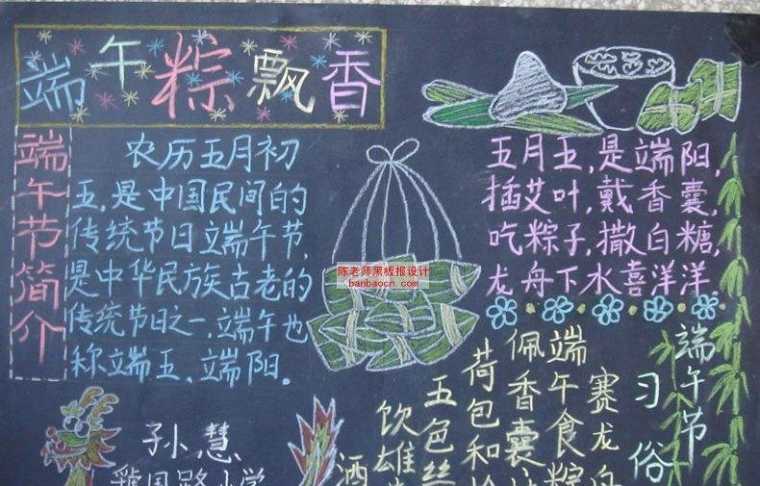 端午粽飘香
端午节简介
农历五月初
五,是中国民间的
传统节日端午节,
是中华民族古老的
传统节日之一,端午也
称端五、端阳。
陈老师黑板报设计
banbaocn.com
五月五,是端阳,
插艾叶,戴香囊,
吃粽子,撒白糖,
龙舟下水喜洋洋
端午节
习俗
赛龙舟
端午食粽
佩香囊
荷包和
五色丝
饮雄
酒
孙慧
国路小学